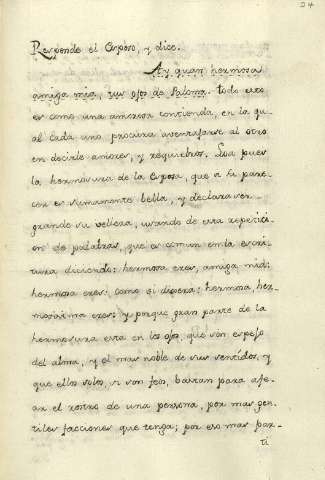 24
Responde el Esposo, y dice.
Ay quan hermosa
amiga mia, tus ojos de Paloma. todo esto
es como una amorosa contienda, en la qu
al cada uno procura aventajarse al otro
en decirle amores, y requiebros. Loa pues
la hermosura de la Esposa, que a su pare-
cer es sumamente bella, y declara ser
grande su belleza, usando de esta repetici-
on de palabras, que es comun en la escri-
tura diciendo: hermosa eres, amiga mia:
hermosa eres: como si dixera: hermosa, her-
mosisima eres: y porque gran parte de la
hermosura esta en los ojos, que son espejo
del alma, y el mas noble de sus sentidos, y
que ellos solos, si son feos, bastan para afe-
ar el rostro de una persona, por mas gen-
tiles facciones que tenga; por eso mas par-
ti